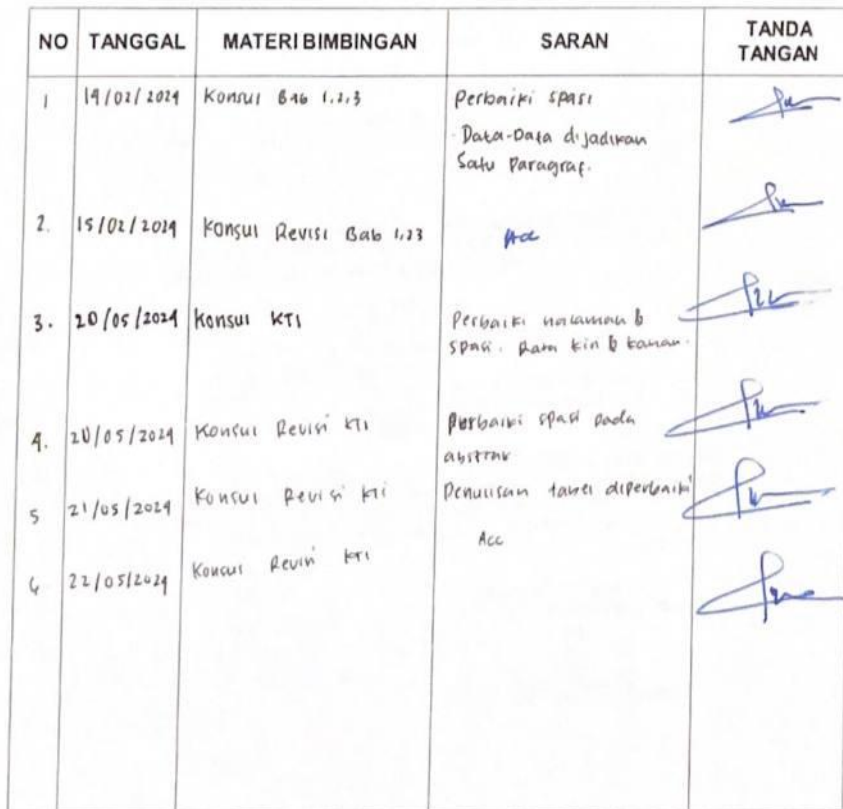 NO TANGGAL MATERI BIMBINGAN SARAN TANDA TANGAN
1 14/02/2024 Konsul Bab 1,2,3 Perbaiki spasi
- Data-Data dijadikan
Satu Paragraf.
2. 15/02/2024 Konsul Revisi Bab 1,23 Acc
3. 20/05/2024 Konsul KTI Perbaiki halaman &
spasi. Rata kiri & kanan.
4. 20/05/2024 Konsul Revisi KTI Perbaiki spasi pada
abstrak
5 21/05/2024 Konsul Revisi KTI Penulisan tabel diperbaiki
6 22/05/2024 Konsul Revisi KTI Acc